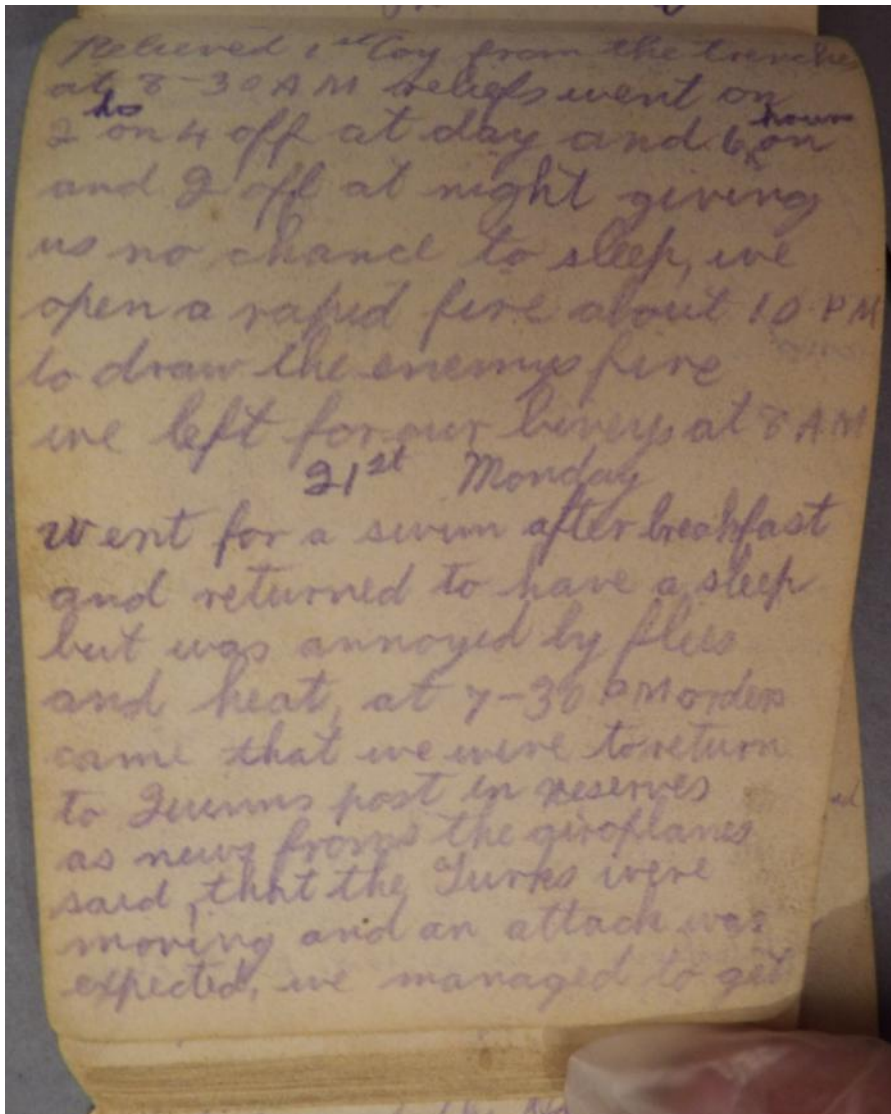 Relieved 1st Coy from the trenches
at 8-30 AM reliefs went on
2 hs on 4 off at day and 6 hours on
and 2 off at night giving
us no chance to sleep, we
open a rapid fire about 10 PM
to draw the enemys fire
we left for our bivvys at 8 AM
21st Monday
went for a swim after breakfast
and returned to have a sleep
but was annoyed by flies
and heat, at 7-30 PM orders
came that we were to return
to Quinns post in reserves
as news from the airoplanes
said, that the Turks were
moving and an attack was
expected, we managed to get